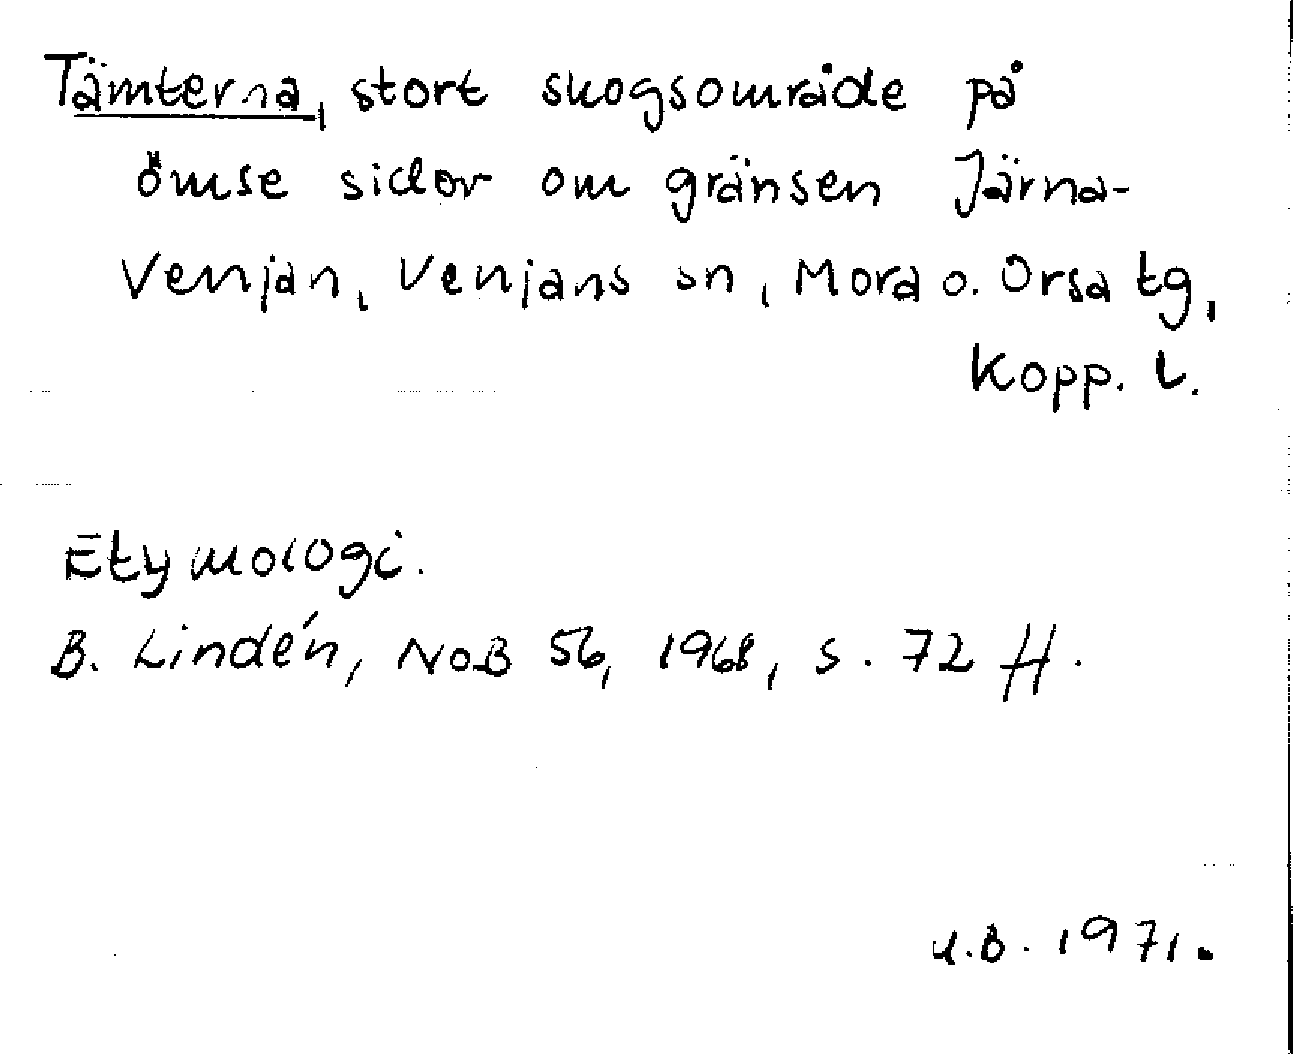 Tämterna, stort skogsområde på
ömse sidor om gränsen Järna-
Venjan, Venjans sn, Mora o. Orsa tg,
Kopp. l.
Etymologi.
B. Lindén, NoB 56, 1968, s. 72 ff.
1971.